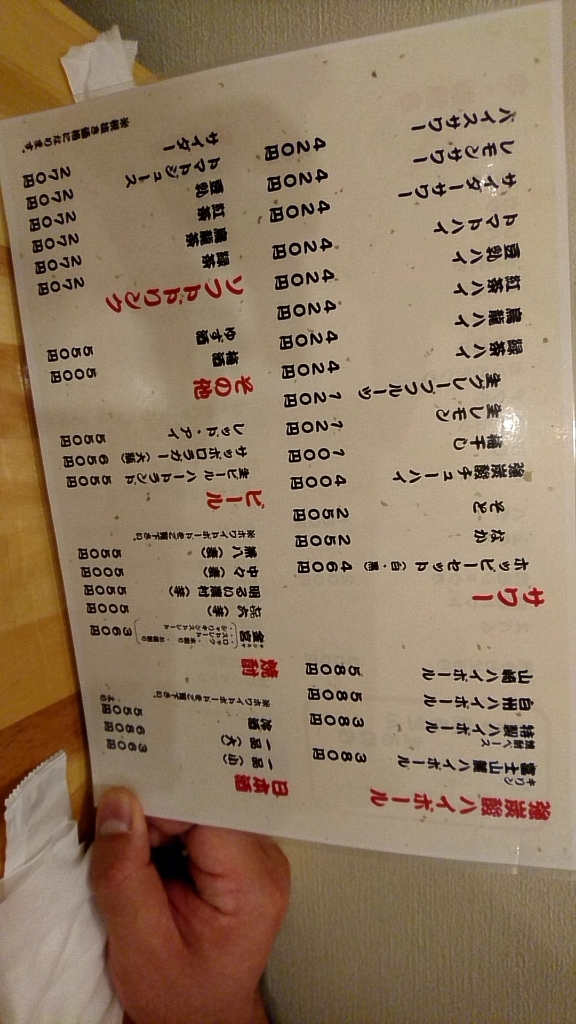 強炭酸ハイボール
キリン
富士山麓ハイボール 380円
焼酎ベース
特製ハイボール 380円
白州ハイボール 580円
山崎ハイボール 580円
サワー
ホッピーセット(白・黒) 460円
なか 250円
そと 250円
強炭酸チューハイ 400円
梅干し 100円
生レモン 120円
生グレープフルーツ 120円
緑茶ハイ 420円
烏龍ハイ 420円
紅茶ハイ 420円
豆乳ハイ 420円
トマトハイ 420円
サイダーサワー 420円
レモンサワー 420円
バイスサワー 420円
日本酒
一品(小) 360円
一品(大) 680円
冷酒 550円より
※ホワイトボードをご覧下さい。
焼酎
キンミヤ
金宮 360円
・ロック ・水割り
・ストレート ・お湯割り
・シャリキンストレート
志大(芋) 500円
明るい農村(芋) 550円
中々(麦) 500円
兼八(麦) 550円
※ホワイトボードをご覧下さい。
ビール
生ビール ハートランド 550円
サッポロラガー(大瓶) 650円
レッド・アイ 550円
その他
梅酒 550円
ゆず酒 550円
ソフトドリンク
緑茶 270円
烏龍茶 270円
紅茶 270円
豆乳 270円
トマトジュース 270円
サイダー 270円
※税抜き価格になります。